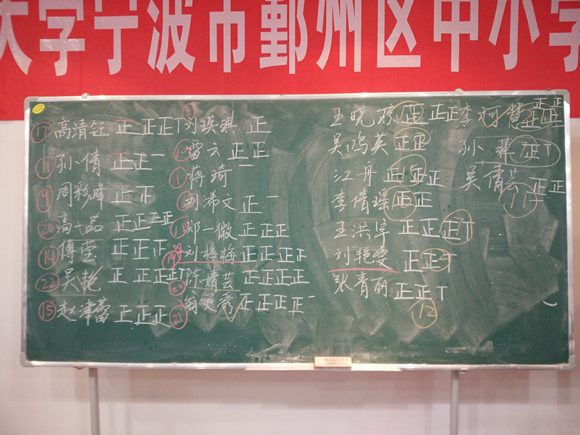 大学宁波市鄞州区中小学
⑰ 高清钰 正 正 正 T
孙倩 正 正 一
周彩峰 正 正
⑳ 高一品 正 正 正 正
⑭ 傅莹 正 正 T
㉒ 吴艳 正 正 正 正 T
⑮ 赵津蕾 正 正 正
刘瑛琪 正
雷云 正 正
① 蒋琦 一
刘浠文 正 一
郑一傲 正 正 正
刘梅梅 正 正 正 正
陈婧芸 正 正 正 正
㉑ 正 正 正 正 一
王晓琼 正 正 正
吴鸿英 正 正
江丹 正 正 正
李倩瑶 正 正
王洪宇 正 正 正 T
刘艳荣 正 正 T
张青丽 正 正 T
12
李柯 正 正
孙 正 T
吴倩芸 正 正
11